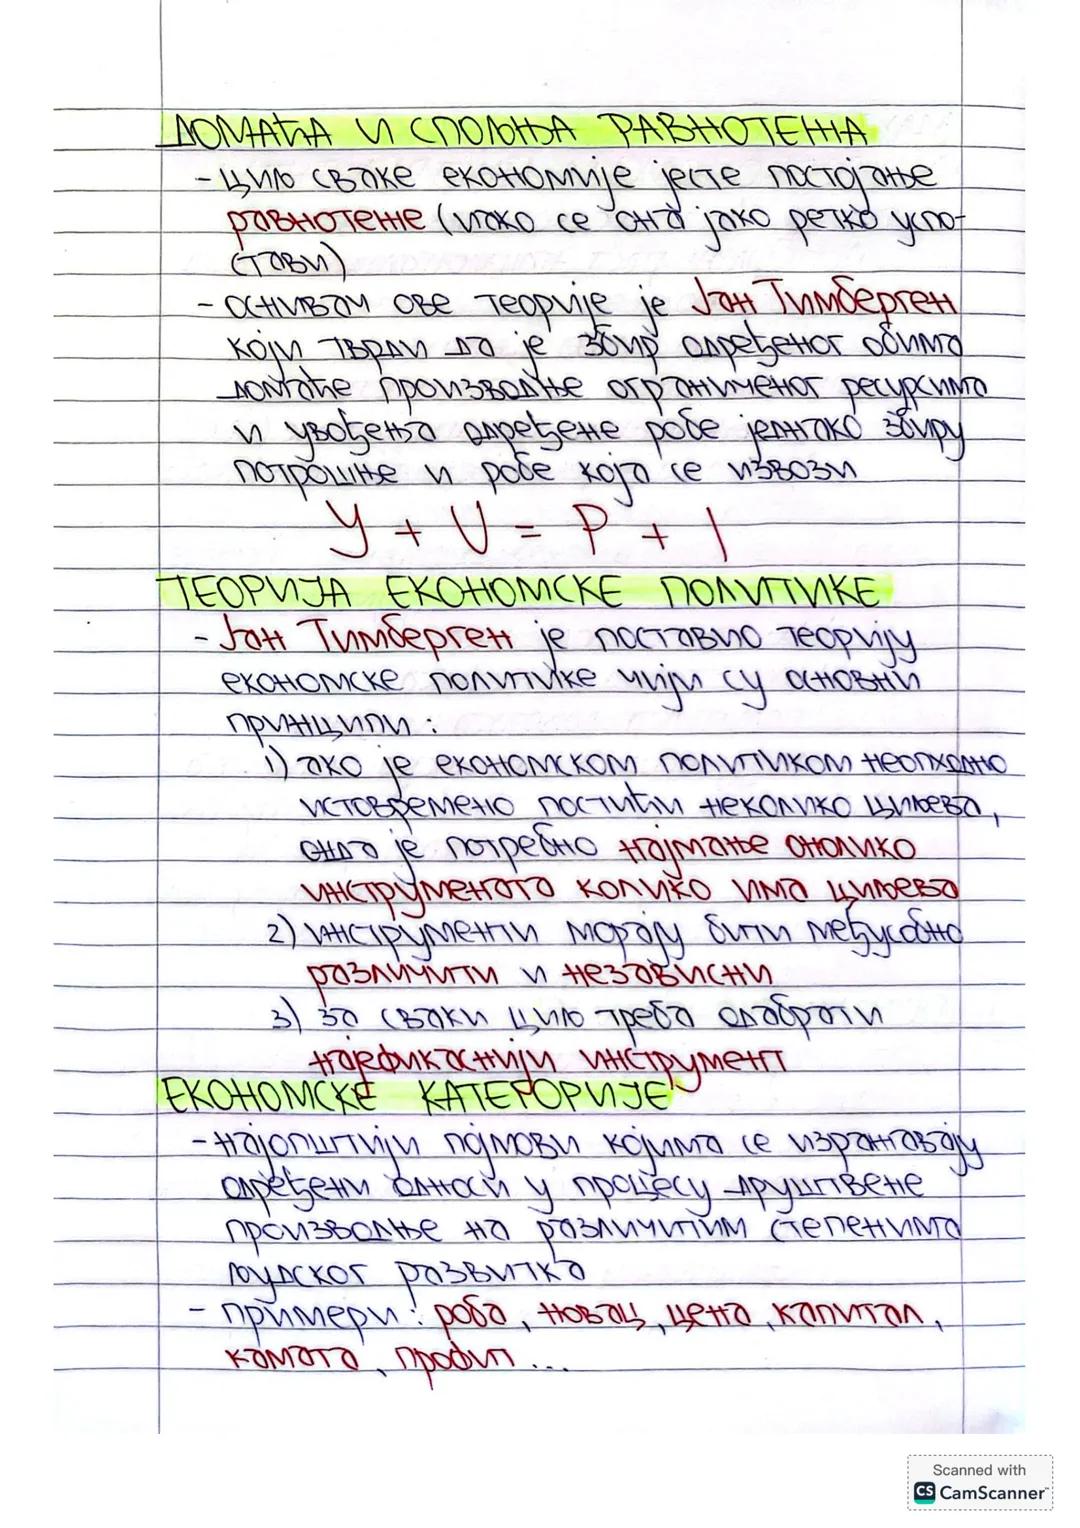 ДОМАЋА И СПОЉЊА РАВНОТЕЖА
- циљ сваке економије јесте постојање
равнотеже (иако се она јако ретко успо-
стави)
- оснивач ове теорије је Јан Тимберген
који тврди да је збир одређеног обима
домаће производње ограниченог ресурсима
и увођења одређене робе једнако збиру
потрошње и робе која се извози
Y + U = P + I
ТЕОРИЈА ЕКОНОМСКЕ ПОЛИТИКЕ
- Јан Тимберген је поставио теорију
економске политике чији су основни
принципи :
1) ако је економском политиком неопходно
истовремено постићи неколико циљева,
онда је потребно најмање онолико
инструмената колико има циљева
2) инструменти морају бити међусобно
различити и независни
3) за сваки циљ треба одабрати
најефикаснији инструмент
ЕКОНОМСКЕ КАТЕГОРИЈЕ
- најопштији појмови којима се изражавају
одређени односи у процесу друштвене
производње на различитим степенима
људског развитка
- примери : роба, новац, цена, капитал,
камата, профит ...
Scanned with
CS CamScanner